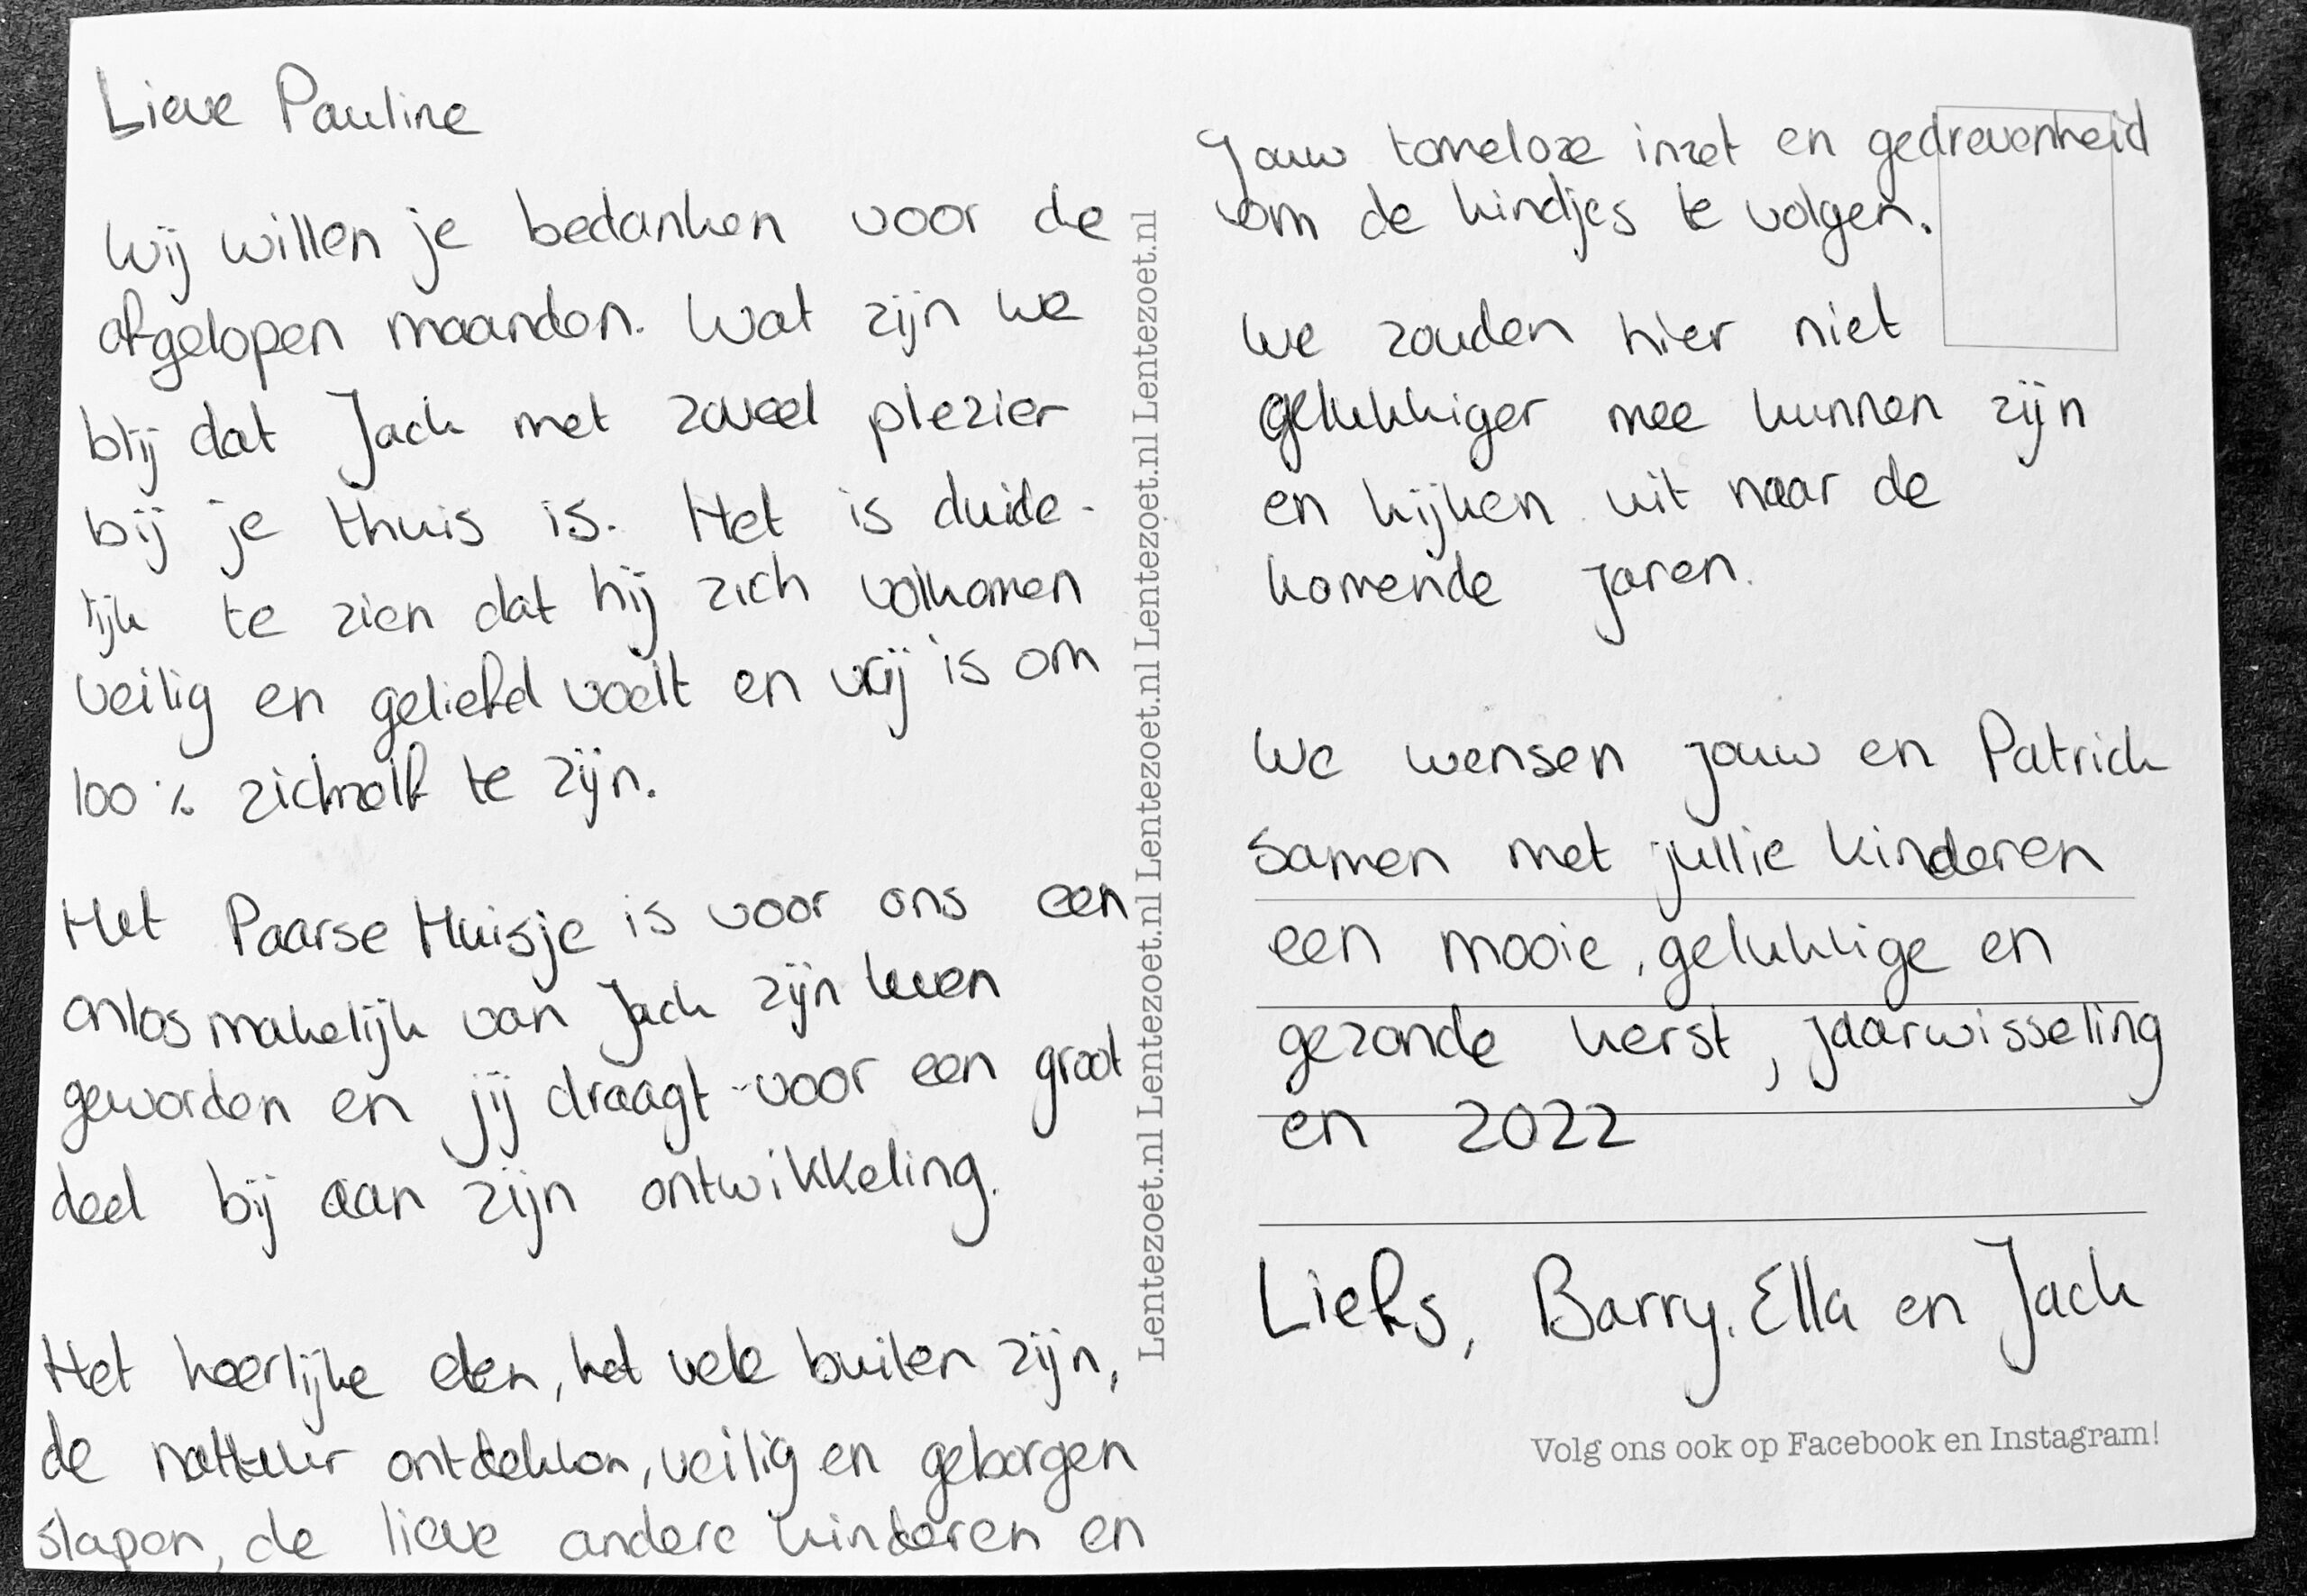 Lieve Pauline
Wij willen je bedanken voor de
afgelopen maanden. Wat zijn we
blij dat Jack met zoveel plezier
bij je thuis is. Het is duide-
lijk te zien dat hij zich volkomen
veilig en geliefd voelt en vrij is om
100% zichzelf te zijn.
Het Paarse Huisje is voor ons een
onlosmakelijk van Jack zijn leven
geworden en jij draagt voor een groot
deel bij aan zijn ontwikkeling.
Het heerlijke eten, het vele buiten zijn,
de natuur ontdekken, veilig en geborgen
slapen, de lieve andere kinderen en
Lentezoet.nl Lentezoet.nl Lentezoet.nl Lentezoet.nl Lentezoet.nl Lentezoet.nl Lentezoet.nl
Jouw tomeloze inzet en gedrevenheid
om de kindjes te volgen.
We zouden hier niet
gelukkiger mee kunnen zijn
en kijken uit naar de
komende jaren.
We wensen jouw en Patrick
samen met jullie kinderen
een mooie, gelukkige en
gezonde kerst, jaarwisseling
en 2022
Liefs, Barry, Ella en Jack
Volg ons ook op Facebook en Instagram!